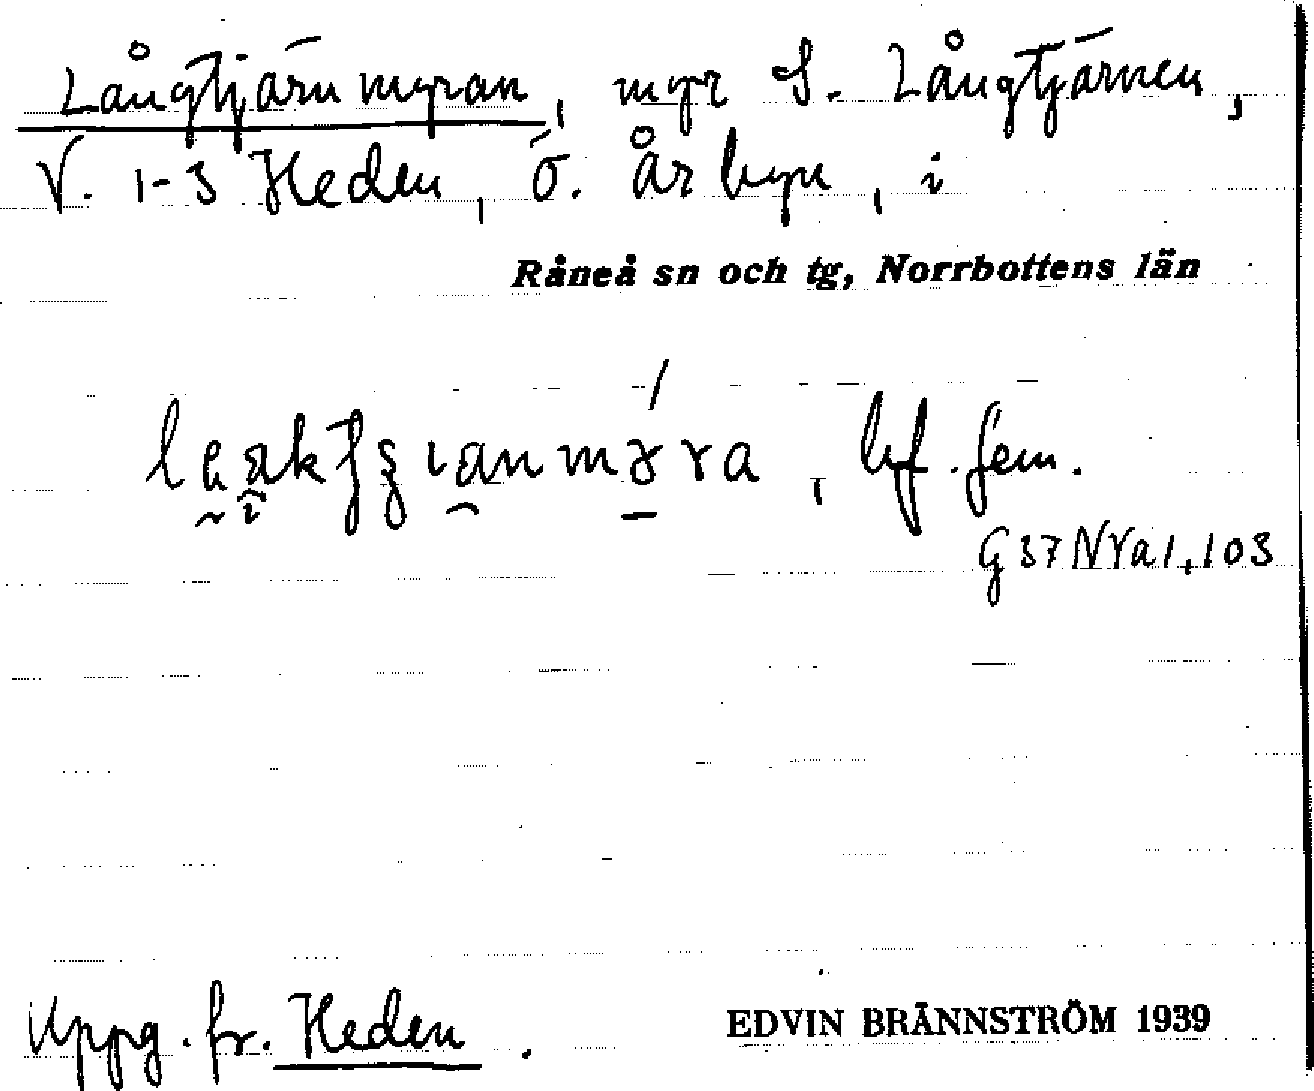 Långtjärnmyran, myr S. Långtjärnen,
V. 1-3 Heden, ö. Årbyn, i
Råneå sn och tg, Norrbottens län
, bf. fem.
G 37 NYa1, 103
Uppg. fr. Heden.
EDVIN BRÄNNSTRÖM 1939